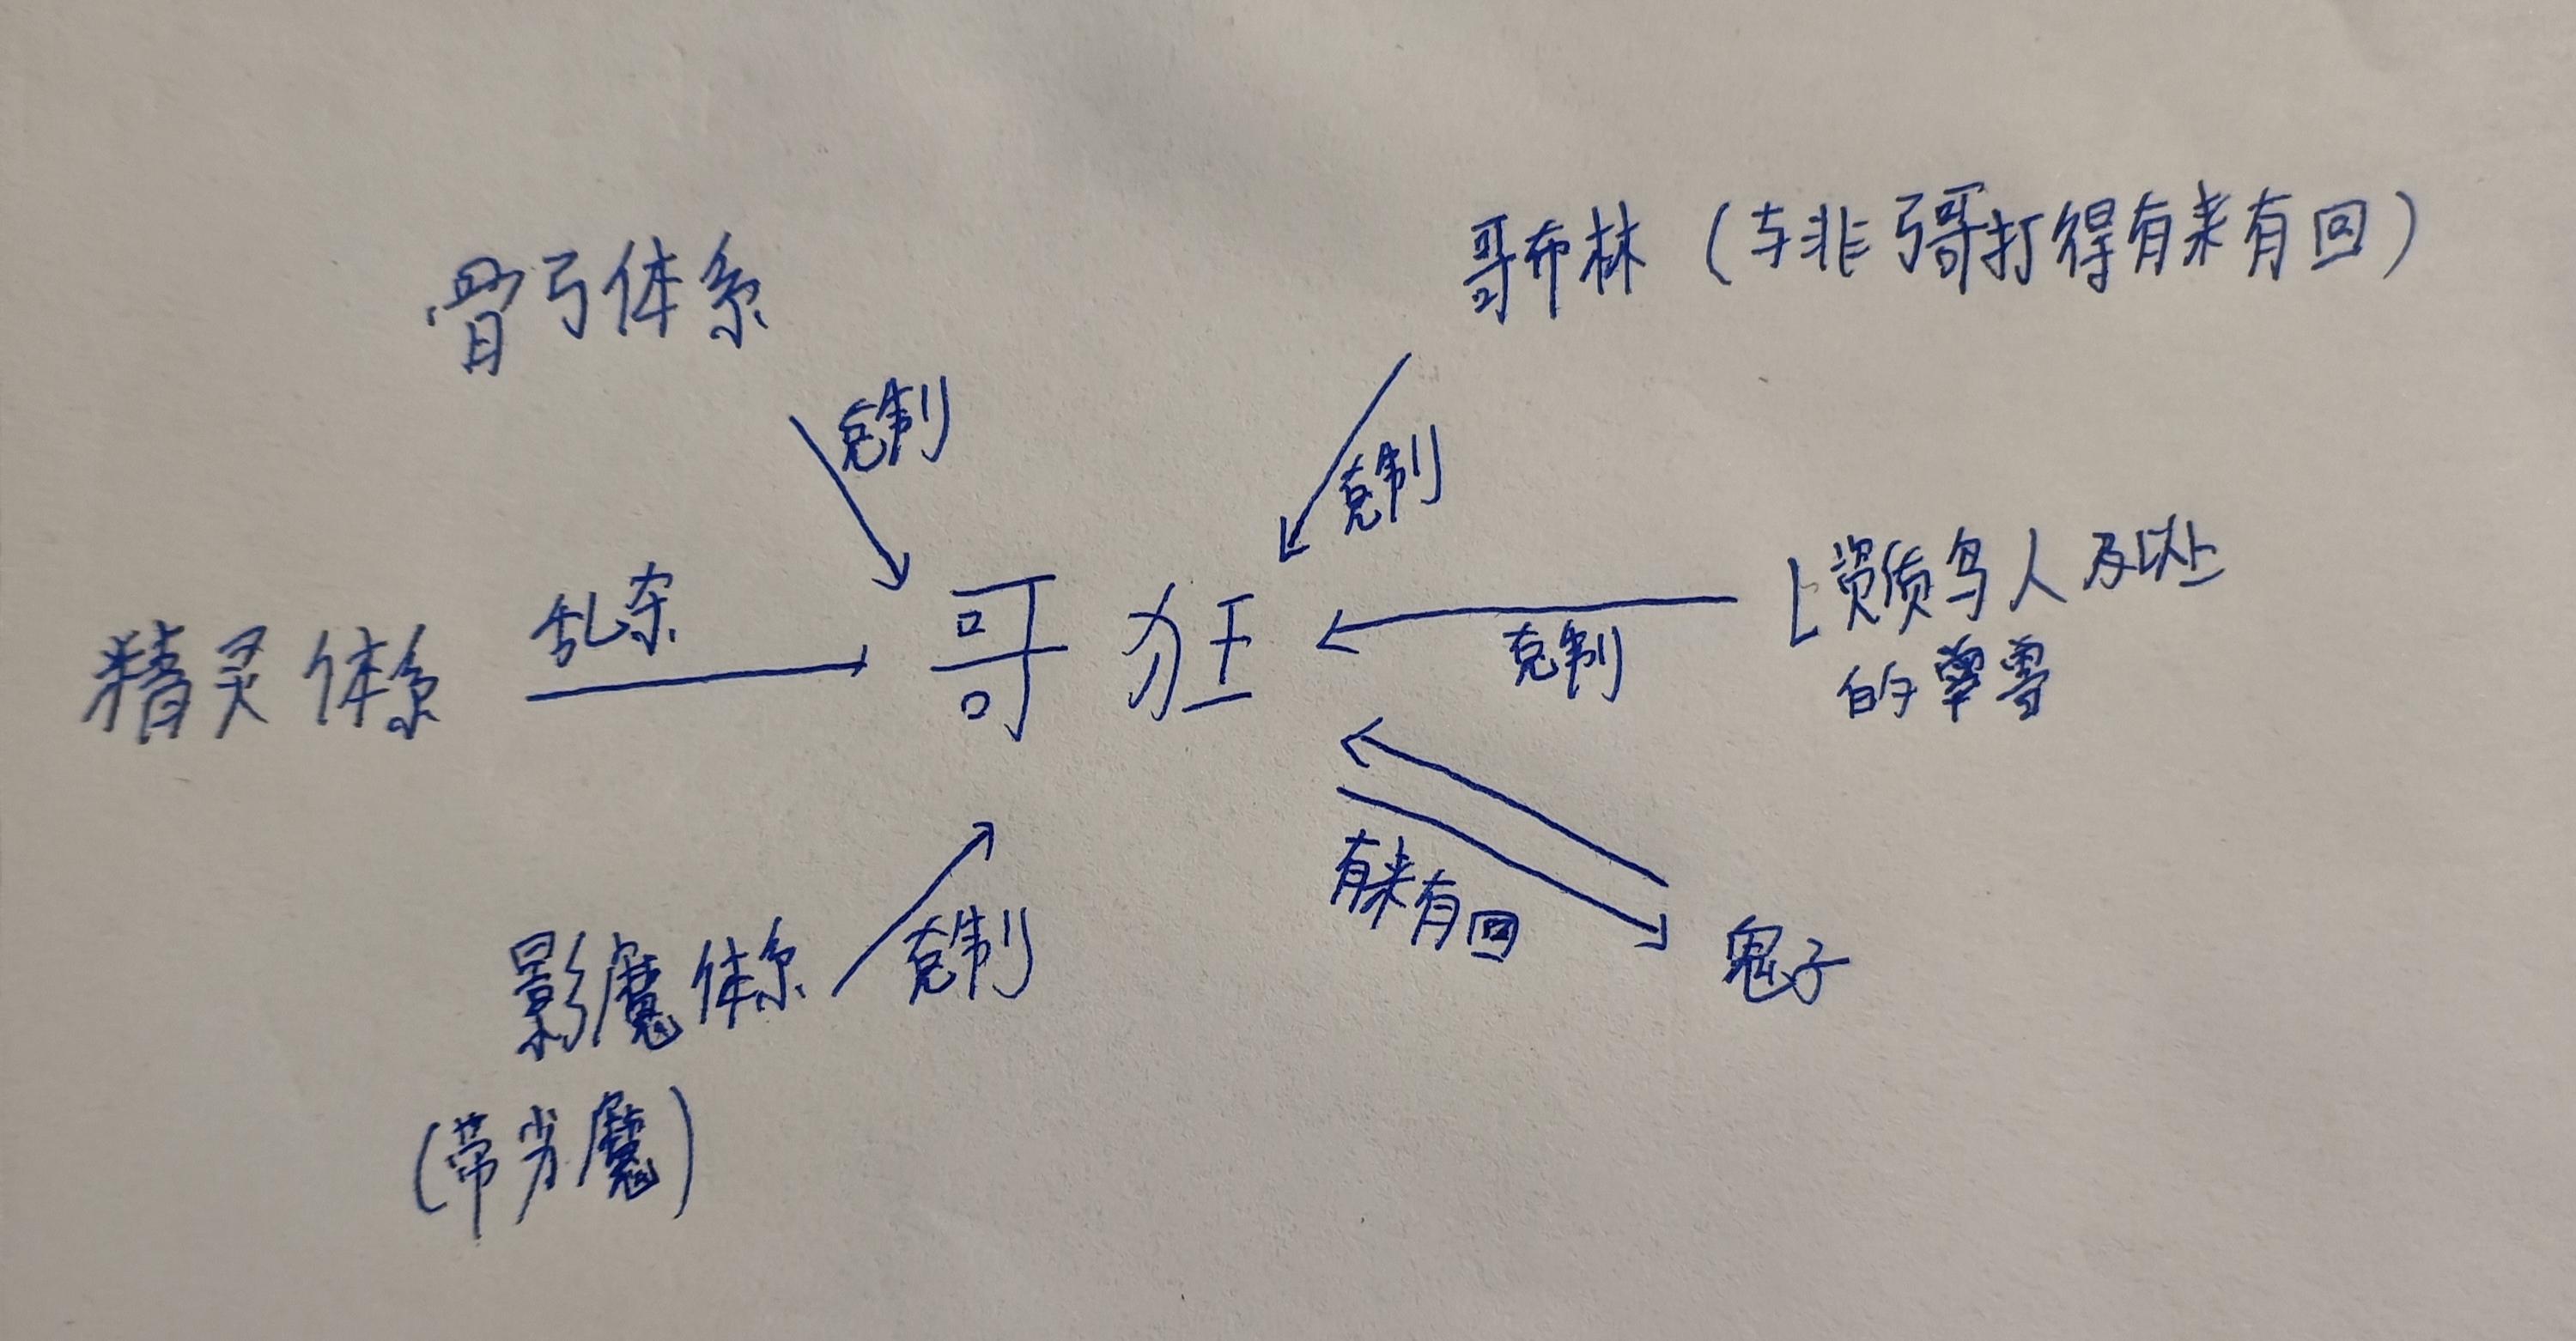 骨弓体系
哥布林（与非弓哥打得有来有回）
克制
克制
精灵体系
乱杀
哥狂
克制
L资质鸟人及以上
的单兽
有来有回
鬼子
影魔体系
克制
（带劣魔）